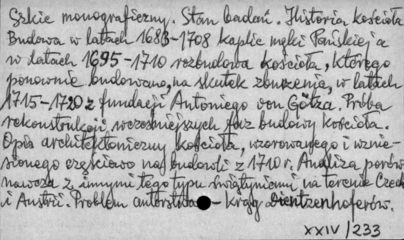 Szkic monograficzny. Stan badań. Historia kościoła
Budowa w latach 1683-1708 kaplic męki Pańskiej a
w latach 1695-1710 rozbudowa kościoła, którego
ponownie budowano, na skutek zburzenia, w latach
1715-1720 z fundacji Antoniego von Götza. Próba
rekonstrukcji wcześniejszych faz budowy kościoła.
Opis architektoniczny kościoła, wzorowanego i wznie-
sionego częściowo na budowli z 1710 r. Analiza porów-
nawcza z innymi tego typu świątyniami na terenie Czech
i Austrii. Problem autorstwa - krąg Dientzenhoferów.
XXIV/233